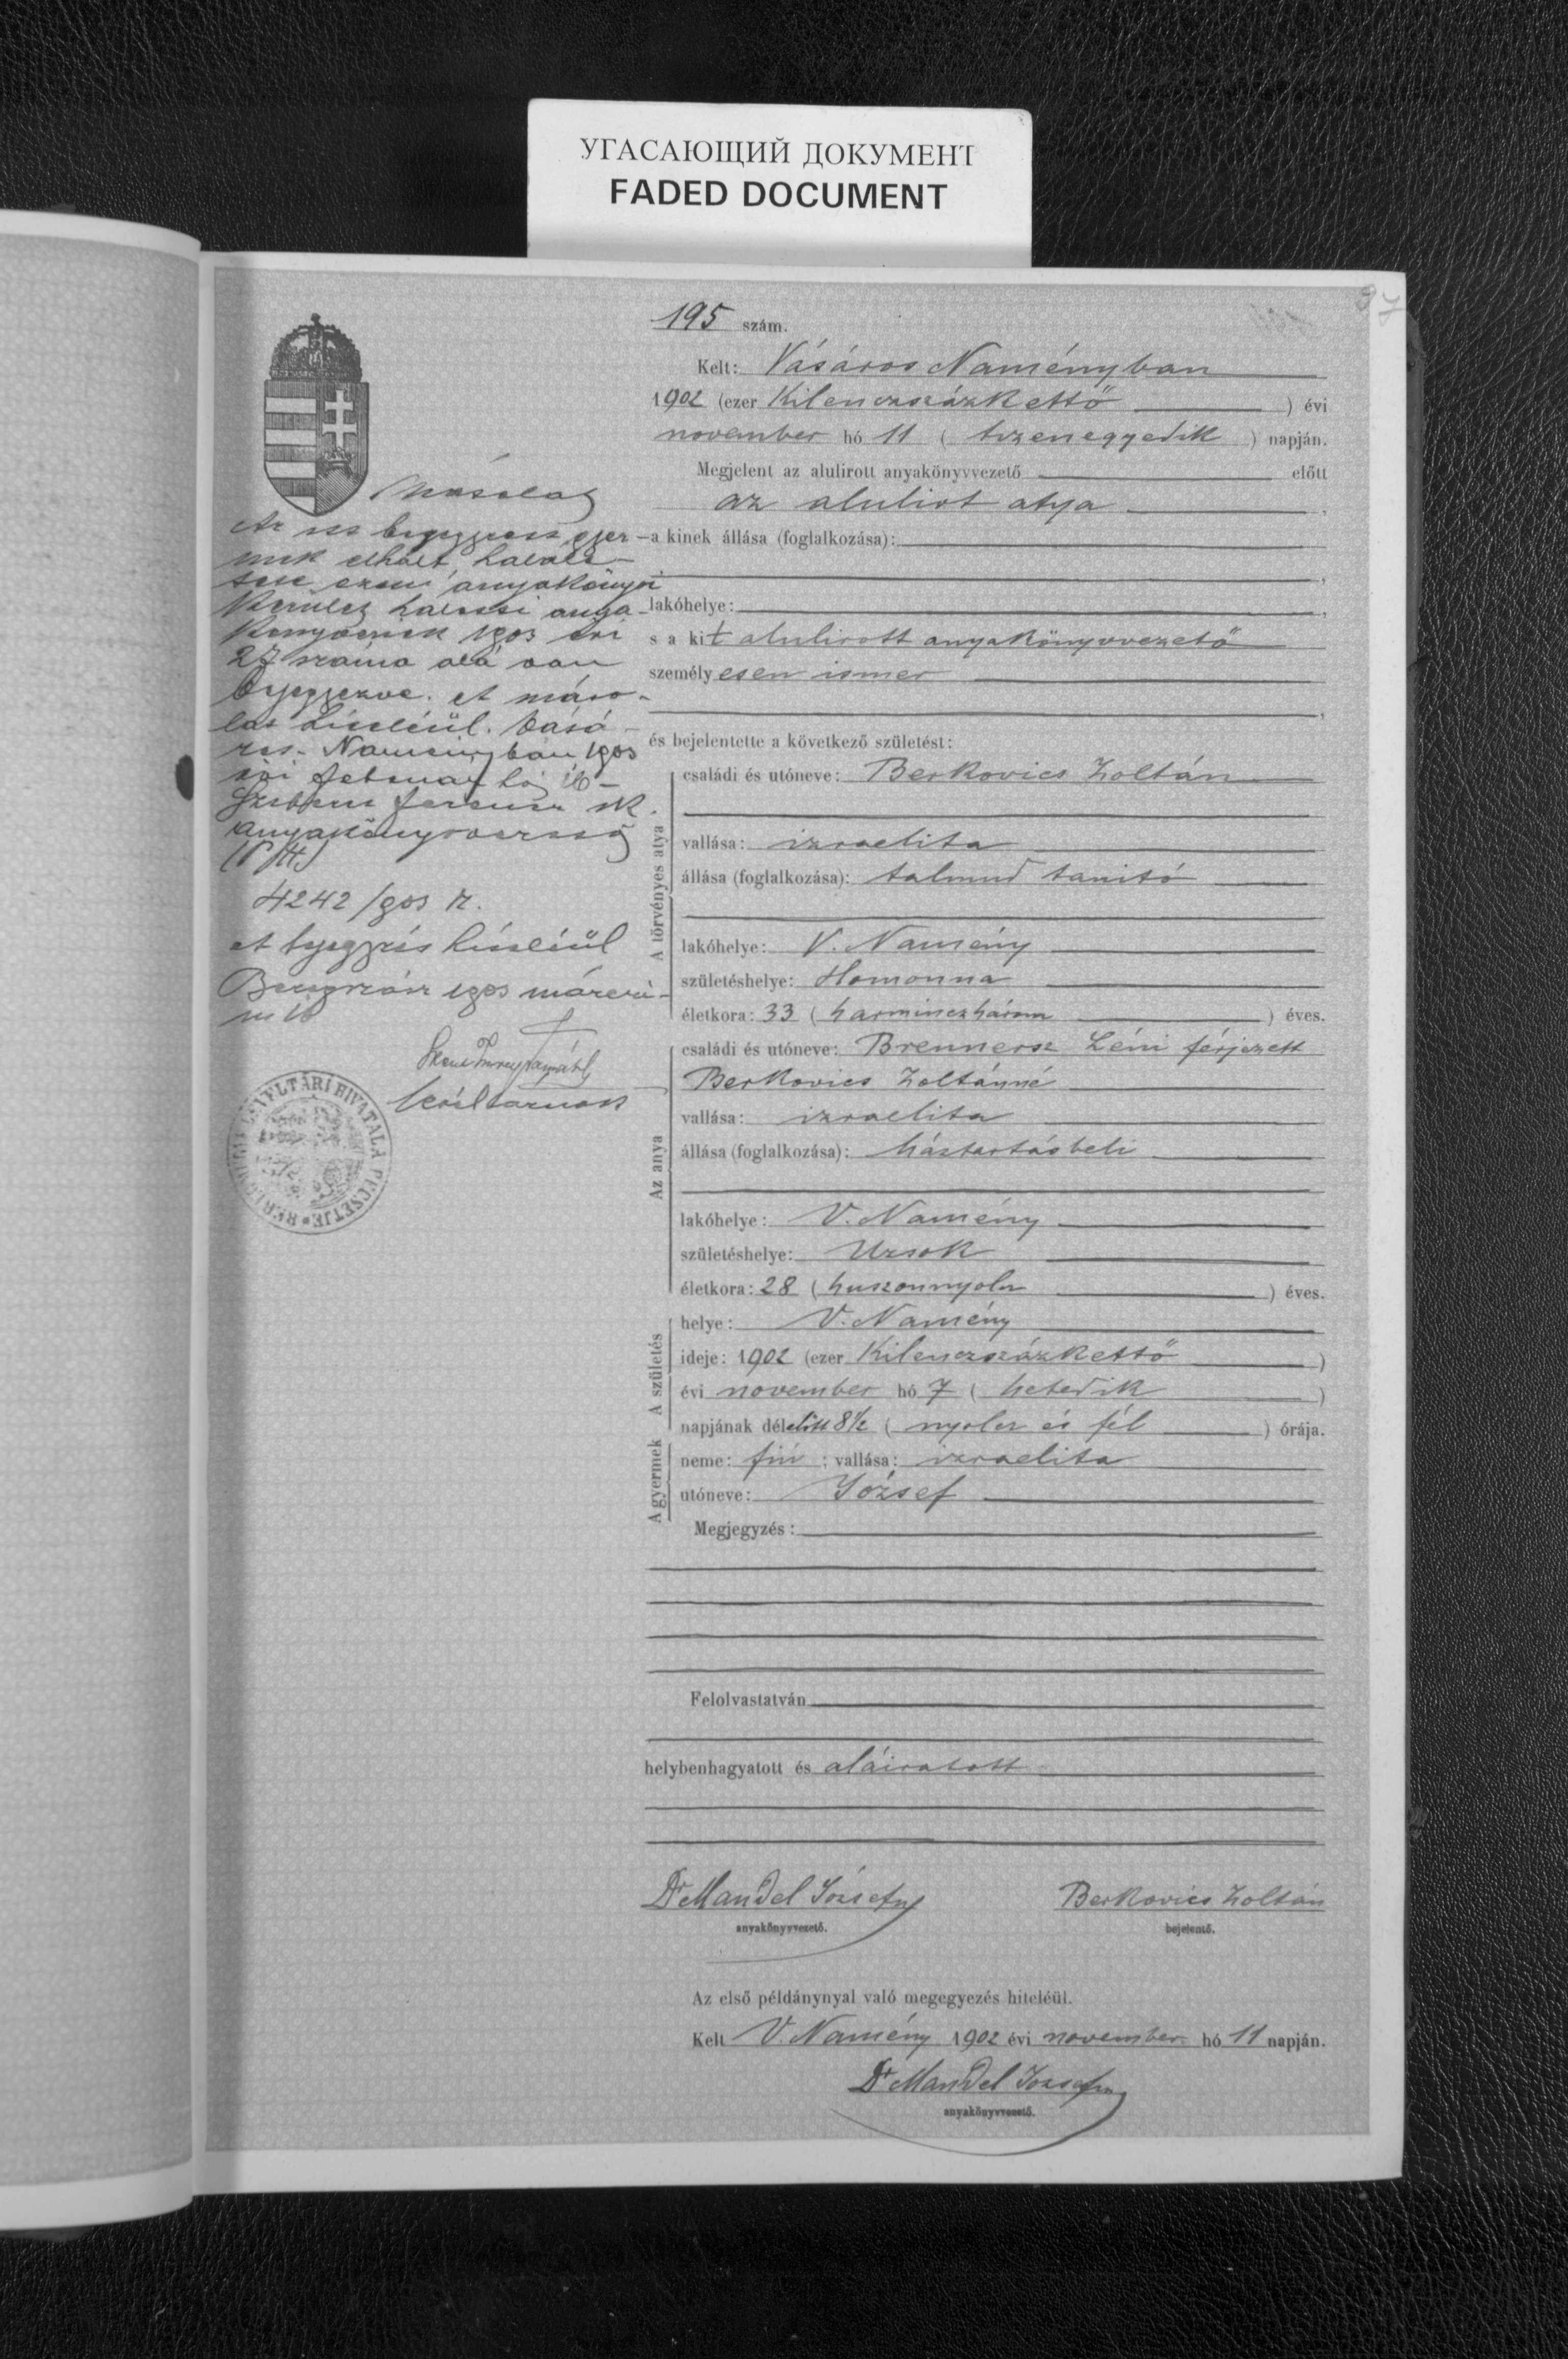 УГАСАЮЩИЙ ДОКУМЕНТ
FADED DOCUMENT
97
195 szám.
Kelt: Vásáros Naményban
1902 (ezer Kilenczszázkettő) évi
november hó 11 (tizenegyedik) napján.
Megjelent az alulirott anyakönyvvezető előtt
az alulirt atya,
a kinek állása (foglalkozása):
lakóhelye:
s a kit alulirott anyakönyvvezető
személyesen ismer
és bejelentette a következő születést:
A törvényes atya
családi és utóneve: Berkovics Zoltán
vallása: izraelita
állása (foglalkozása): talmud tanitó
lakóhelye: V. Namény
születéshelye: Homonna
életkora: 33 (harminczhárom) éves.
Az anya
családi és utóneve: Brennersz Léni férjezett
Berkovics Zoltánné
vallása: izraelita
állása (foglalkozása): háztartásbeli
lakóhelye: V. Namény
születéshelye: Uzsok
életkora: 28 (huszonnyolcz) éves.
A születés
helye: V. Namény
ideje: 1902 (ezer Kilenczszázkettő)
évi november hó 7 (hetedik)
napjának délelőtt 8½ (nyolcz és fél) órája.
A gyermek
neme: fiú; vallása: izraelita
utóneve: József
Megjegyzés:
Felolvastatván
helybenhagyatott és aláiratott
Dr Mandel József
anyakönyvvezető.
Berkovics Zoltán
bejelentő.
Az első példánynyal való megegyezés hiteléül.
Kelt V. Namény 1902 évi november hó 11 napján.
Dr Mandel József
anyakönyvvezető.
Másolat
elhalt
ezen anyakönyvi
kerület halotti anya-
1903 évi
27 száma alá van
bejegyezve. A máso-
lat hiteléül. Vásá-
ros-Naményban 1903
évi február hó 16-
Ferencz sk.
anyakönyvvezető
(P.H.)
4242/903 sz.
A bejegyzés hiteléül
Beregszász 1903 márczi-
us 16
levéltárnok
LEVÉLTÁRI HIVATALA PECSÉTJE